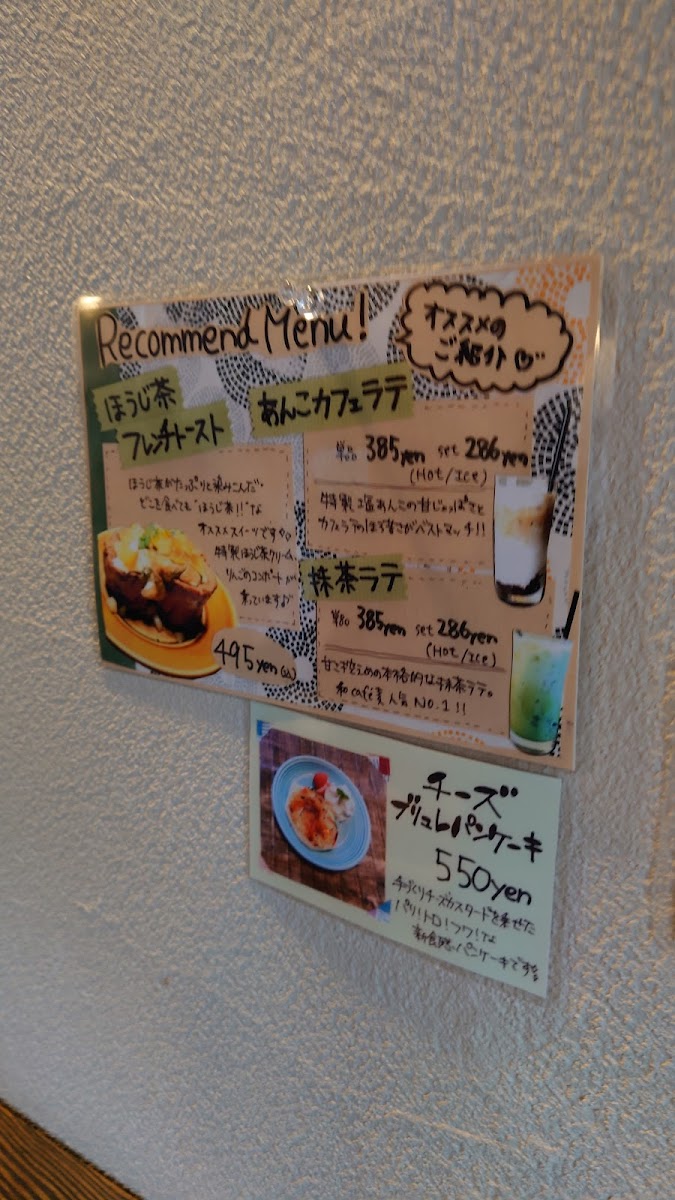 Recommend Menu!
オススメの
ご紹介♡
ほうじ茶
フレンチトースト
ほうじ茶がたっぷりと染みこんだ、
どこを食べても"ほうじ茶!!"な
オススメスイーツです
特製ほうじ茶クリーム、
りんごのコンポートが
乗っています♪
495yen
あんこカフェラテ
単品 385yen set 286yen
(Hot/Ice)
特製塩あんこの甘じょっぱさと
カフェラテのほろ苦さがベストマッチ!!
抹茶ラテ
単品 385yen set 286yen
(Hot/Ice)
甘さ控えめの本格的な抹茶ラテ。
和cafe 人気NO.1!!
チーズ
ブリュレパンケーキ
550yen
手づくりチーズカスタードを乗せた
パリ!トロ!フワ!な
新食感パンケーキです